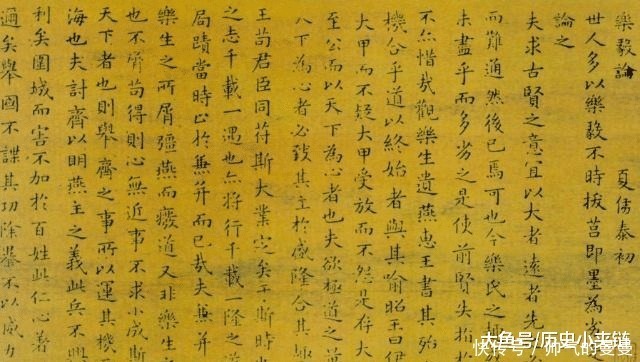 樂毅論 夏侯泰初
世人多以樂毅不時拔莒即墨為
論之
夫求古賢之意宜以大者遠者先
而難通然後已焉可也今樂氏之
未盡乎而多劣之是使前賢失指
不亦惜哉觀樂生遺燕惠王書其殆
機合乎道以終始者與其喻昭王曰伊
大甲而不疑大甲受放而不怨是存大
至公而以天下為心者也夫欲極道之
下為心者必致其主於盛隆合其
王苟君臣同苻斯大業定矣于斯時
之志千載一遇也亦將行千載一隆之
局蹟當時止於兼并而已哉夫兼并
樂生之所屑彊燕而廢道又非樂生
也不屑苟得則心無近事不求小成斯
天下者也則舉齊之事所以運其機
海也夫討齊以明燕主之義此兵不
利矣圍城而害不加於百姓此仁心著
通矣舉國不謀其功除暴不以威力
大鱼号/历史小来链
快传号/帅气的曼曼